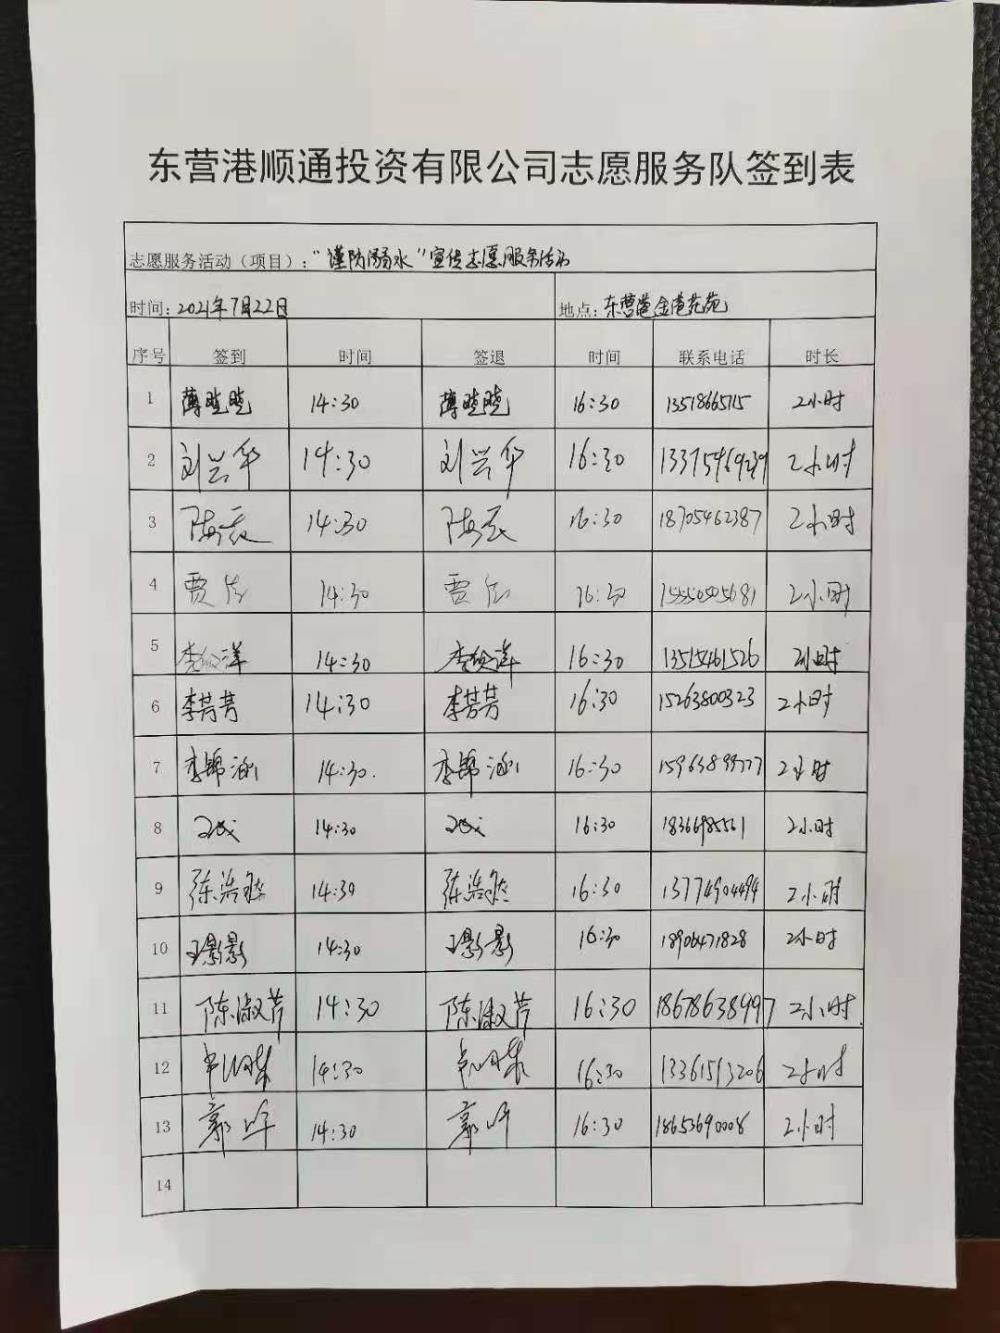 东营港顺通投资有限公司志愿服务队签到表
志愿服务活动（项目）：“谨防溺水”宣传志愿服务活动
时间：2021年7月22日 地点：东营港金港花苑
序号 签到 时间 签退 时间 联系电话 时长
1 薄晓晓 14:30 薄晓晓 16:30 13518665715 2小时
2 刘兴华 14:30 刘兴华 16:30 13375469239 2小时
3 14:30 16:30 18705462387 2小时
4 贾 14:30 贾 16:30 2小时
5 李 洋 14:30 李 洋 16:30 13515461526 2小时
6 李芳芳 14:30 李芳芳 16:30 15263800323 2小时
7 李锦涵 14:30. 李锦涵 16:30 15963899777 2小时
8 14:30 16:30 18366985561 2小时
9 张浩 14:30 张浩 16:30 13774904494 2小时
10 王影影 14:30 王影影 16:30 18906471828 2小时
11 陈淑芹 14:30 陈淑芹 16:30 18678638997 2小时
12 14:30 16:30 13361513206 2小时
13 郭 14:30 郭 16:30 18653690008 2小时
14